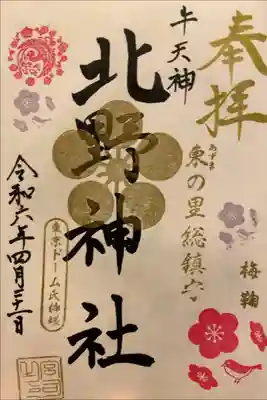 奉拝
牛天神
あずま
東の里総鎮守
梅鞠
北野神社
東京ドーム氏神様
令和六年四月二十一日